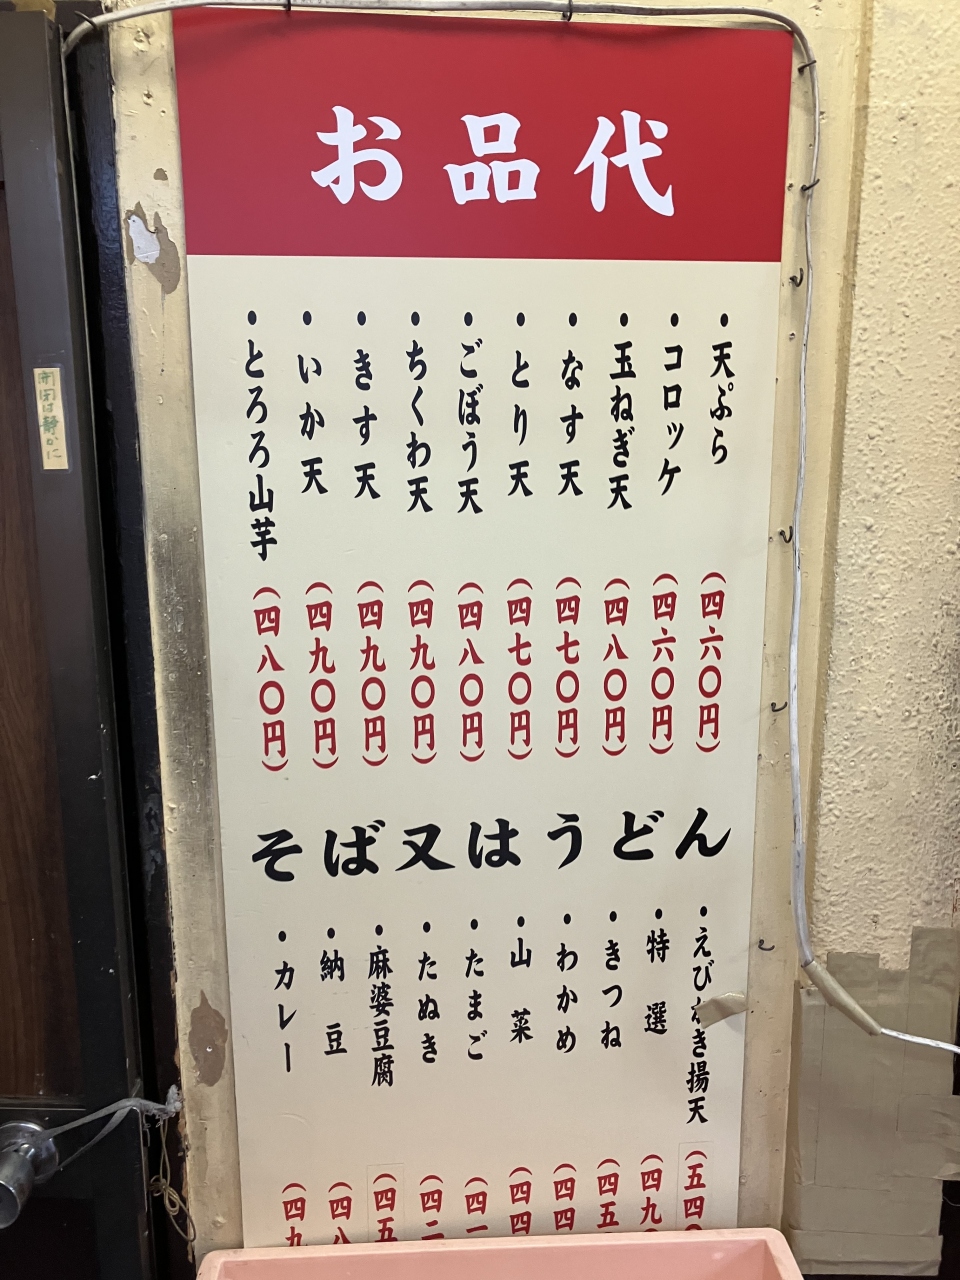 お品代
・天ぷら（四六〇円）
・コロッケ（四六〇円）
・玉ねぎ天（四八〇円）
・なす天（四七〇円）
・とり天（四七〇円）
・ごぼう天（四八〇円）
・ちくわ天（四九〇円）
・きす天（四九〇円）
・いか天（四九〇円）
・とろろ山芋（四八〇円）
そば又はうどん
・えび き揚天（五四
・特選（四九
・きつね（四五
・わかめ（四四
・山菜（四四
・たまご（四一
・たぬき（四二
・麻婆豆腐（四五
・納豆（四八
・カレー（四九
開閉は静かに